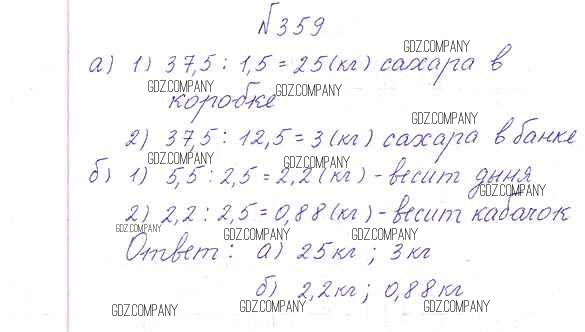 №359
GDZ.COMPANY
а) 1) 37,5 : 1,5 = 25 (кг) сахара в
GDZ.COMPANY GDZ.COMPANY
коробке
GDZ.COMPANY GDZ.COMPANY
2) 37,5 : 12,5 = 3 (кг) сахара в банке
GDZ.COMPANY GDZ.COMPANY
б) 1) 5,5 : 2,5 = 2,2 (кг) - весит дыня
GDZ.COMPANY
2) 2,2 : 2,5 = 0,88 (кг) - весит кабачок
GDZ.COMPANY GDZ.COMPANY GDZ.COMPANY
Ответ: а) 25 кг ; 3 кг
б) 2,2 кг ; 0,88 кг
GDZ.COMPANY GDZ.COMPANY GDZ.COMPANY